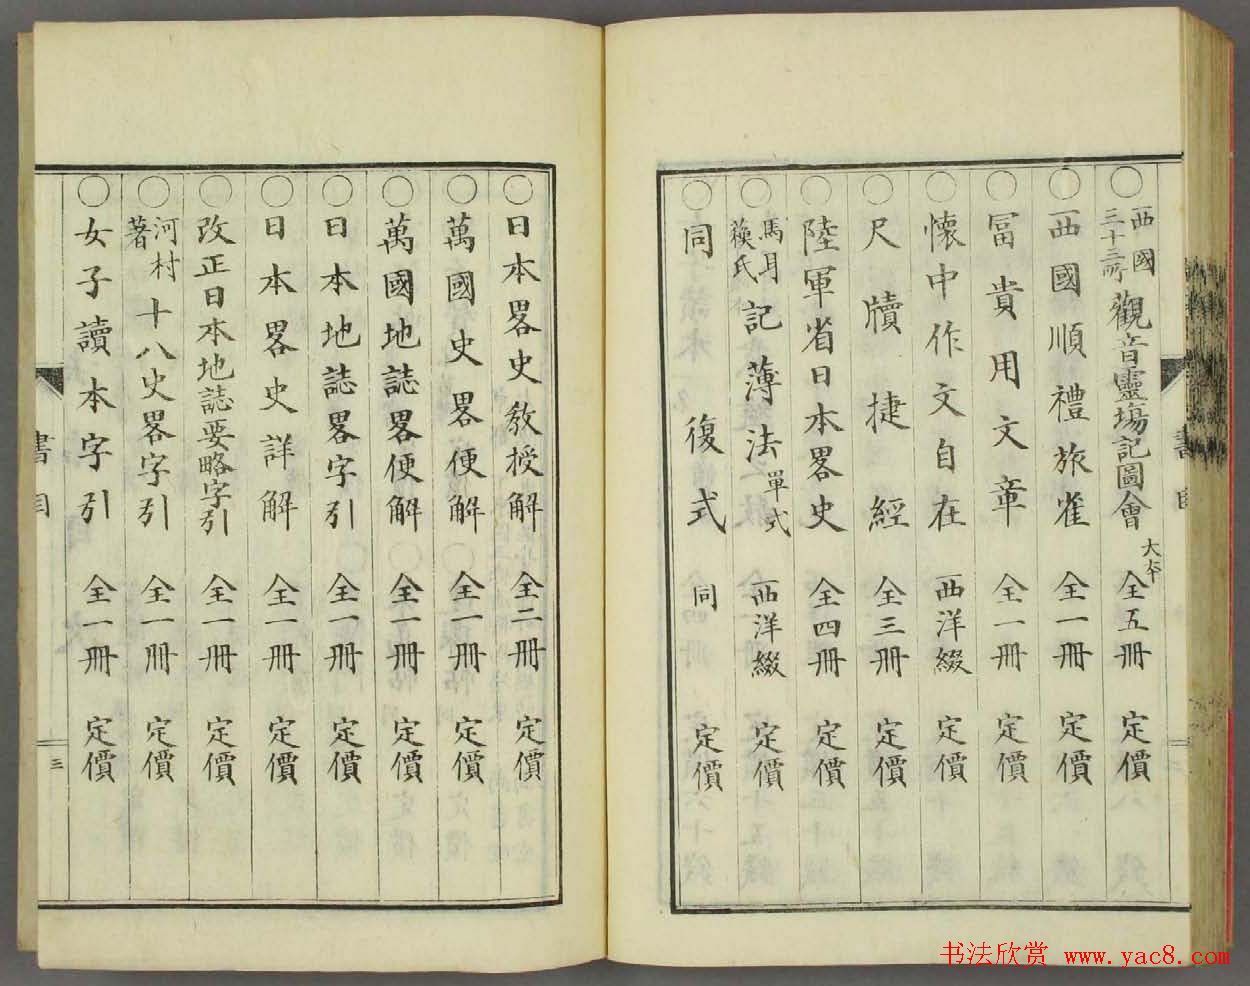 西國三十三所觀音靈塲記圖會 大本 全五冊 定價
西國順禮旅雀 全一冊 定價
冨貴用文章 全一冊 定價
懐中作文自在 西洋綴 定價
尺牘捷經 全三冊 定價
陸軍省日本畧史 全四冊 定價
馬耳蘓氏記薄法單式 西洋綴 定價
同 復式 同 定價
書目
日本畧史教授解 全二冊 定價
萬國史畧便解 全一冊 定價
萬國地誌畧便解 全一冊 定價
日本地誌畧字引 全一冊 定價
日本畧史詳解 全一冊 定價
改正日本地誌要略字引 全一冊 定價
河村著十八史畧字引 全一冊 定價
女子讀本字引 全一冊 定價
書目
三
书法欣赏 www.yac8.com